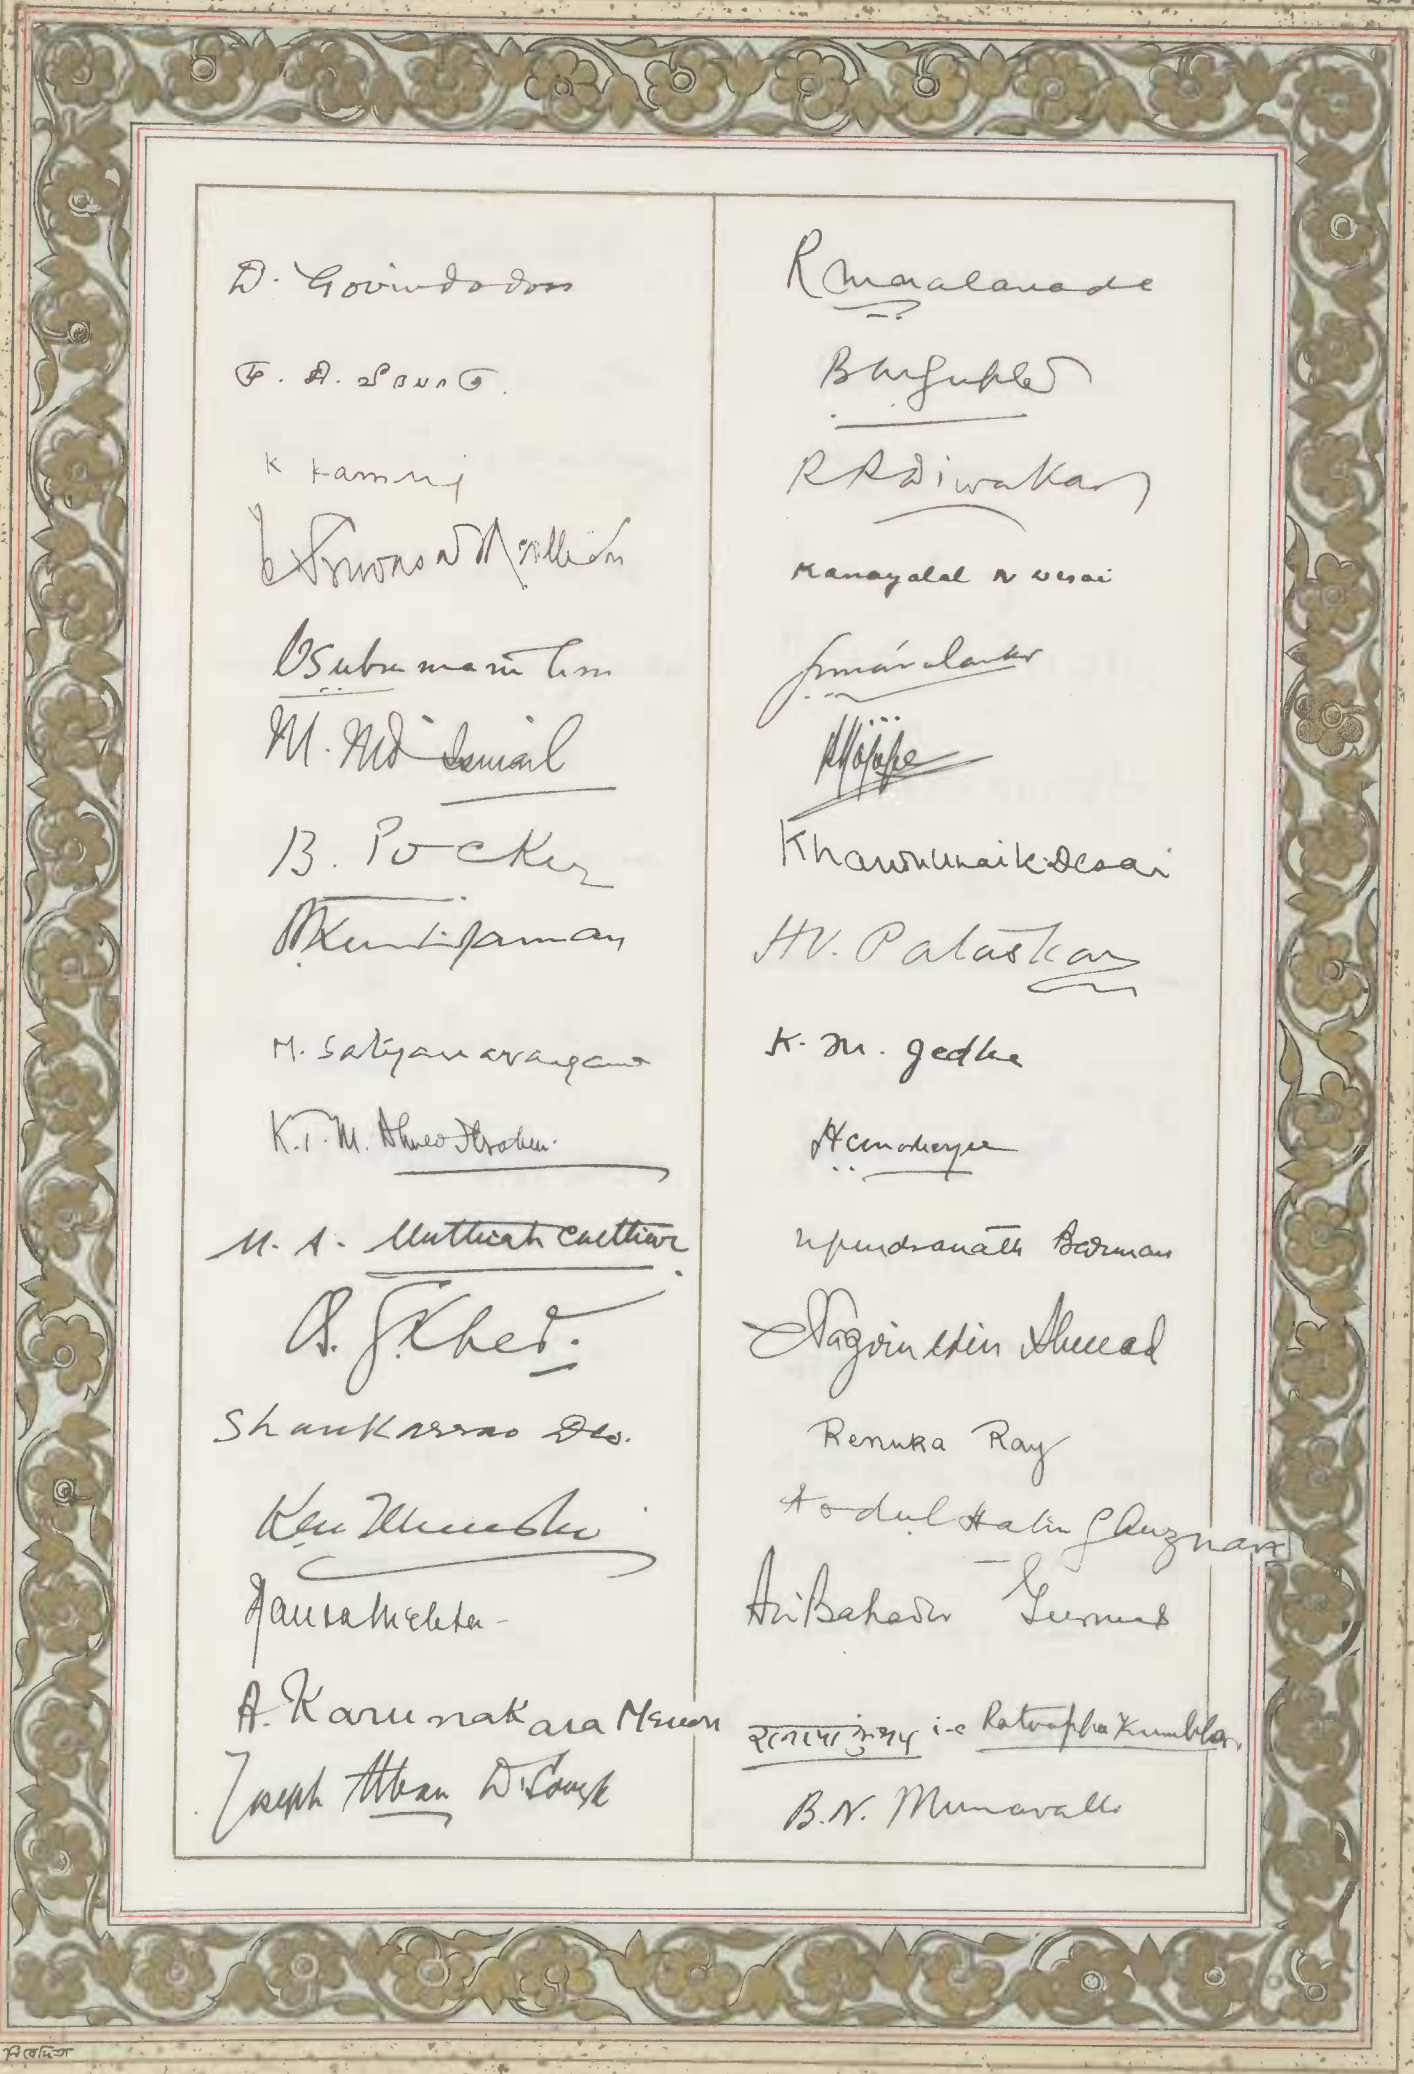 D. Govindadoss
K Kamraj
C Subramaniam
M. Md Ismail
B. Pocker
M. Satyanarayana
K.T.M. Ahmed Ibrahim
M. A. Muthiah Chettiar
B. G. Kher.
Shankarrao Deo.
K M Munshi
Hansa Mehta
A. Karunakara Menon
Joseph Alban D'Souza
R M Nalavade
B M Gupte
R R Diwakar
Kanayalal N Desai
Khandubhai K Desai
H V. Pataskar
K. M. Jedhe
H C Mookerjee
Upendranath Barman
Naziruddin Ahmad
Renuka Ray
Abdul Halim Ghuznavi
Ari Bahadur Gurung
i-e Ratnappa Kumbhar.
B. N. Munavalli